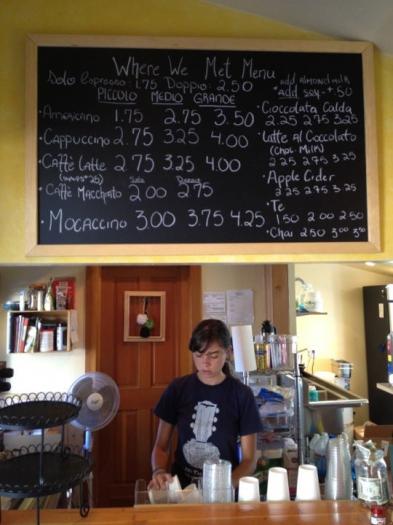 Where We Met Menu
Solo Espresso: 1.75 Doppio: 2.50
PICCOLO MEDIO GRANDE
• Americano 1.75 2.75 3.50
• Cappuccino 2.75 3.25 4.00
• Caffè Latte 2.75 3.25 4.00
Solo Doppio
• Caffè Macchiato 2.00 2.75
• Mocaccino 3.00 3.75 4.25
*add almond milk
*add soy - + .50
• Cioccolata Calda
2.25 2.75 3.25
• Latte Al Cioccolato
(Choc. Milk)
2.25 2.75 3.25
• Apple Cider
2.25 2.75 3.25
• Te
1.50 2.00 2.50
• Chai 2.50 3.00